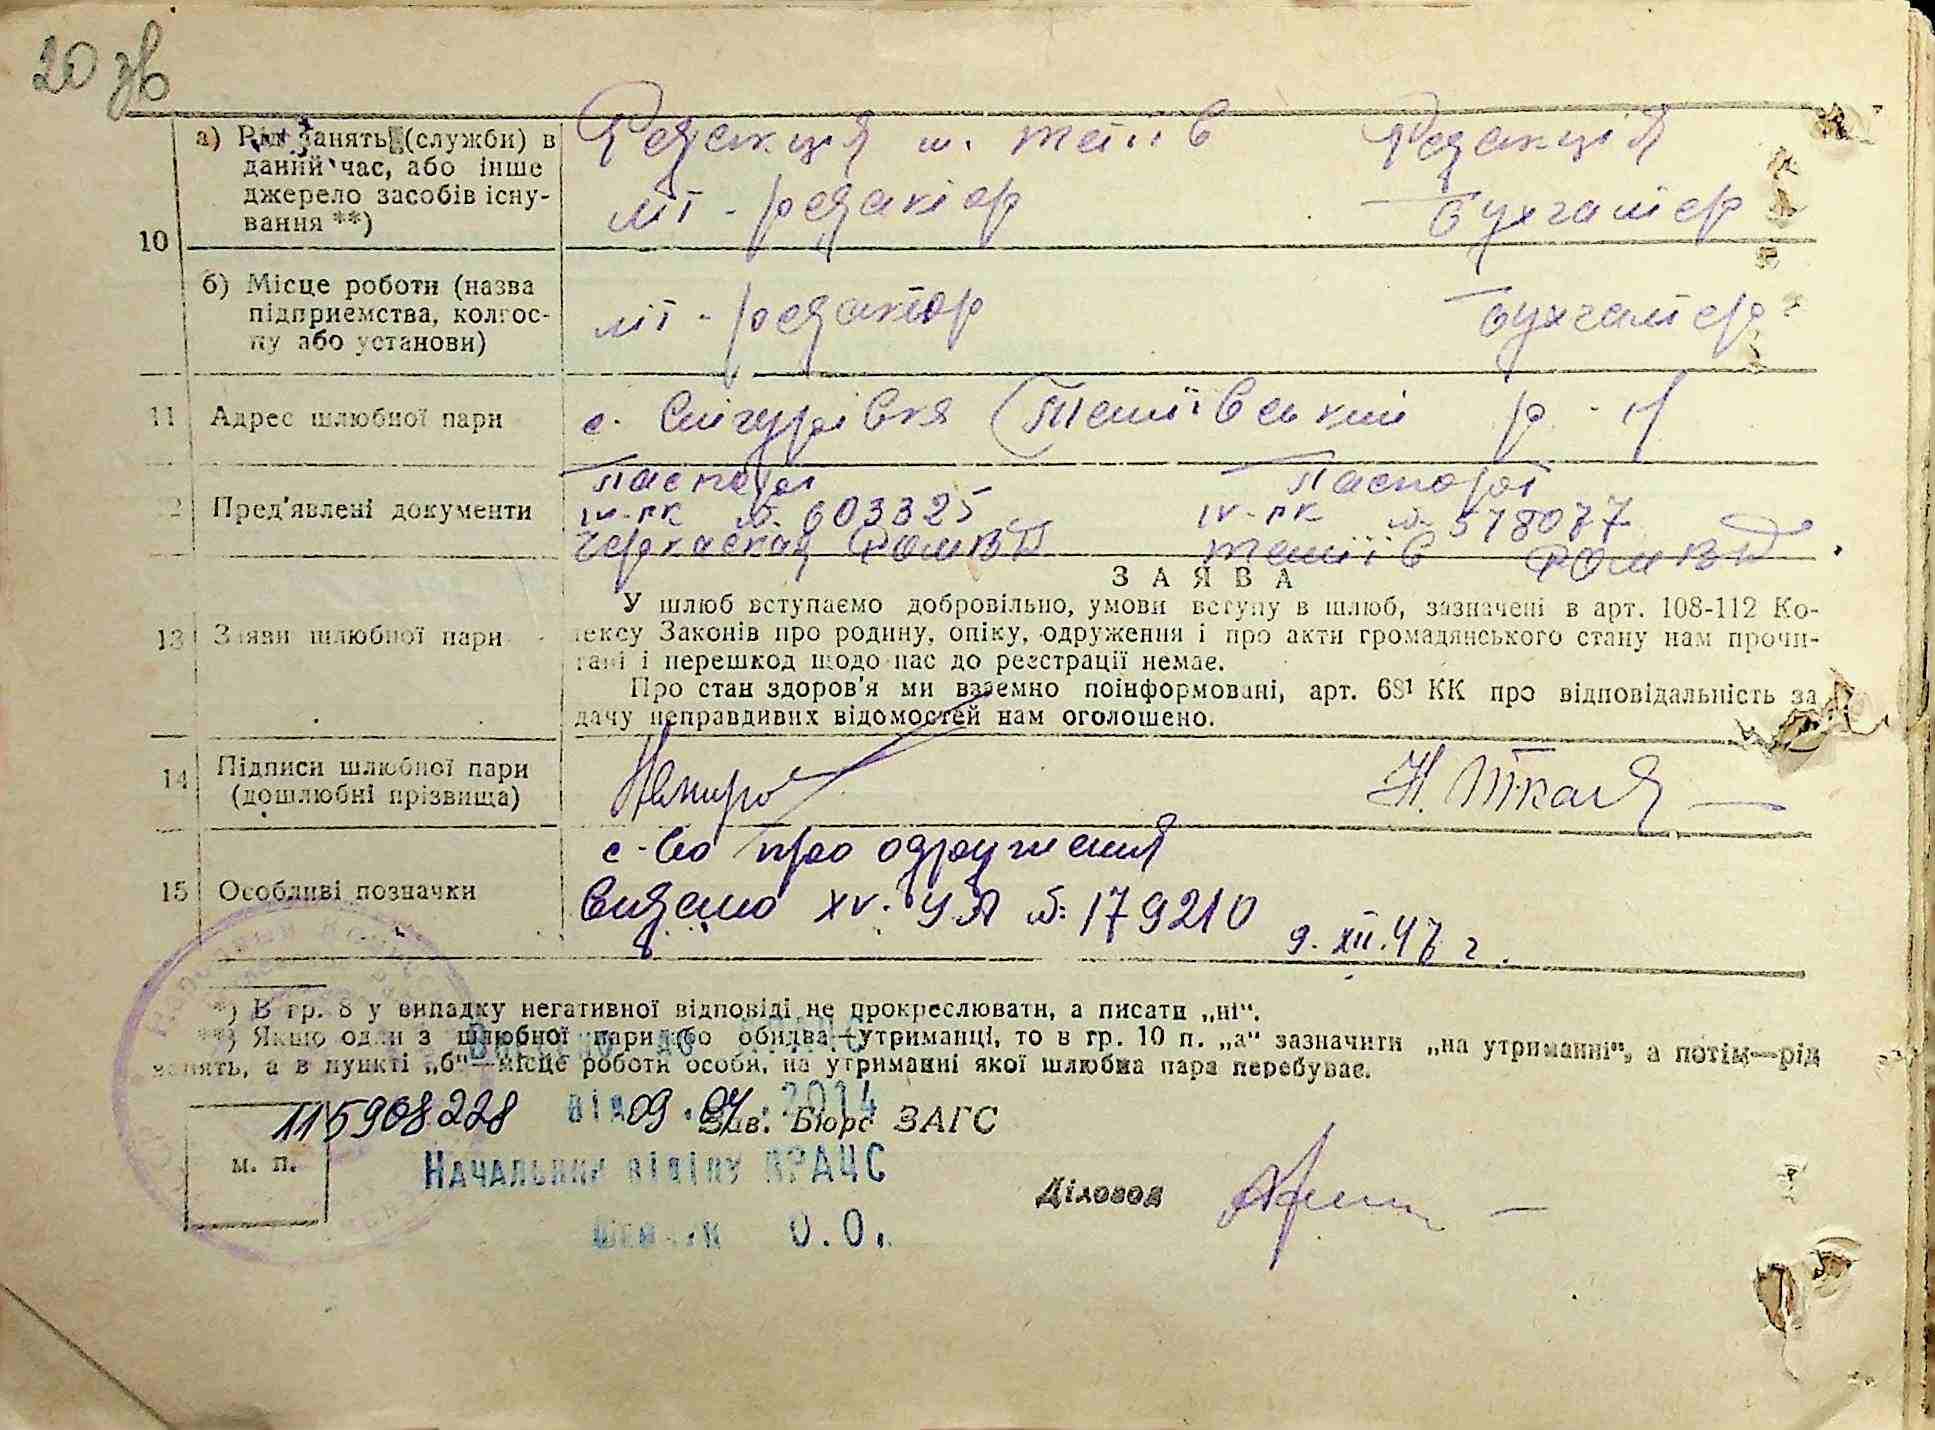 20 зв
10
а) Рід занять (служби) в
даний час, або інше
джерело засобів існу-
вання **)
Редакція м. Тетіїв
літ - редактор
Редакція
бухгалтер
б) Місце роботи (назва
підприємства, колгос-
пу або установи)
літ - редактор
бухгалтер
11 Адрес шлюбної пари
с. Снігурівка (Тетіївський р-н
12 Пред'явлені документи
Паспорт
IV-ПК № 603325
Черкаская РОМВД
Паспорт
IV-ПК № 578077
Тетіїв РОМВД
13 Заяви шлюбної пари
ЗАЯВА
У шлюб вступаємо добровільно, умови вступу в шлюб, зазначені в арт. 108-112 Ко-
дексу Законів про родину, опіку, одруження і про акти громадянського стану нам прочи-
тані і перешкод щодо нас до реєстрації немає.
Про стан здоров'я ми взаємно поінформовані, арт. 68¹ КК про відповідальність за
дачу неправдивих відомостей нам оголошено.
14 Підписи шлюбної пари
(дошлюбні прізвища)
Н. Ткач
15 Особливі позначки
с-во про одруження
видано XV. УЯ № 179210 9.XII.47 г.
*) В гр. 8 у випадку негативної відповіді не прокреслювати, а писати „ні“.
**) Якщо один з шлюбної пари або обидва—утриманці, то в гр. 10 п. „а“ зазначити „на утриманні“, а потім—рід
занять, а в пункті „б“—місце роботи особи, на утриманні якої шлюбна пара перебуває.
115908228
від 09.07.2014
Зав. Бюро ЗАГС
м. п.
Начальник відділу ДРАЦС
О.О.
Діловод